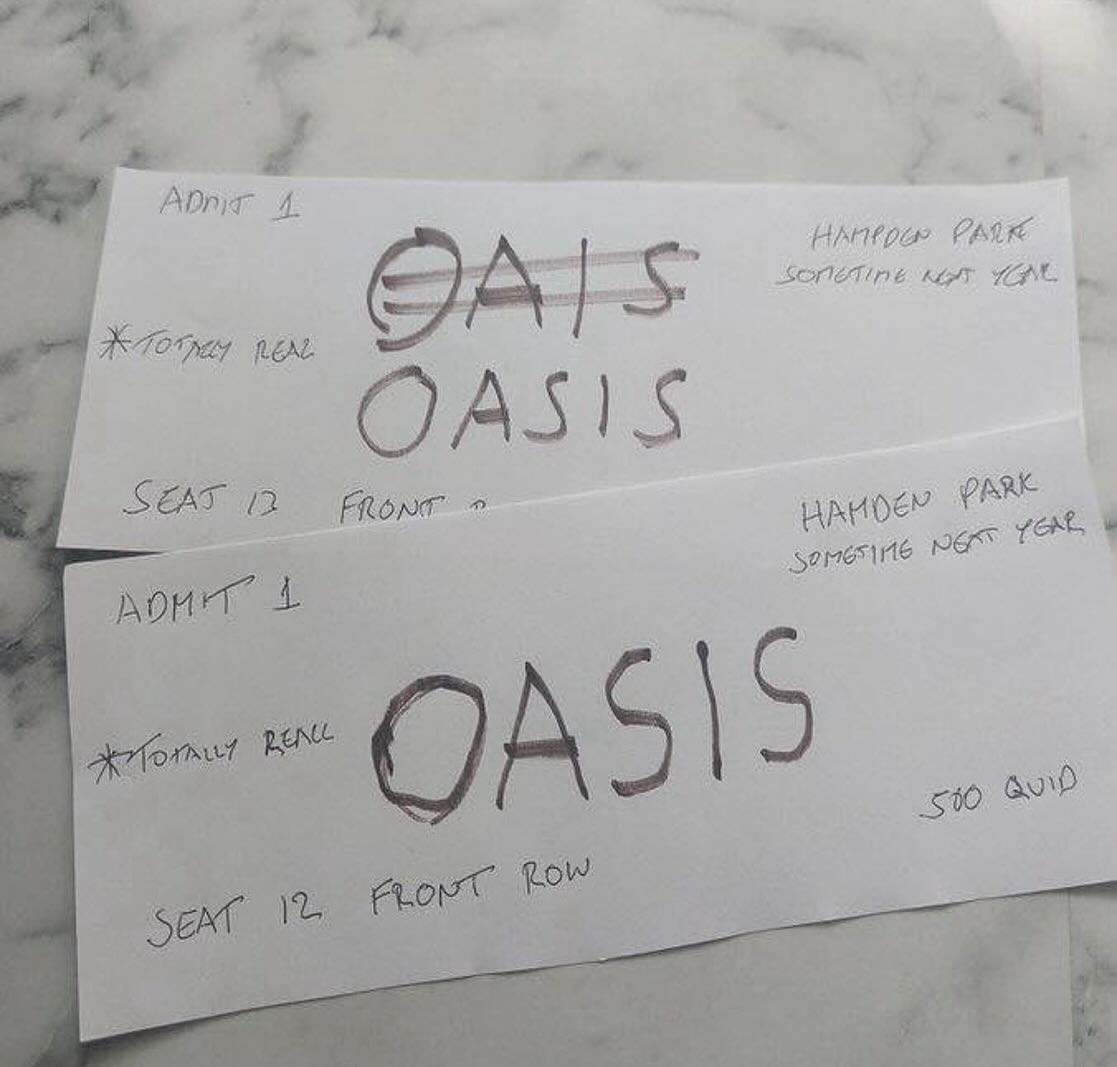 ADMIT 1
HAMPDEN PARK
SOMETIME NEXT YEAR
OAIS
*TOTALLY REAL
OASIS
SEAT 13 FRONT
HAMDEN PARK
SOMETIME NEXT YEAR
ADMIT 1
OASIS
*TOTALLY REALL
500 QUID
SEAT 12 FRONT ROW